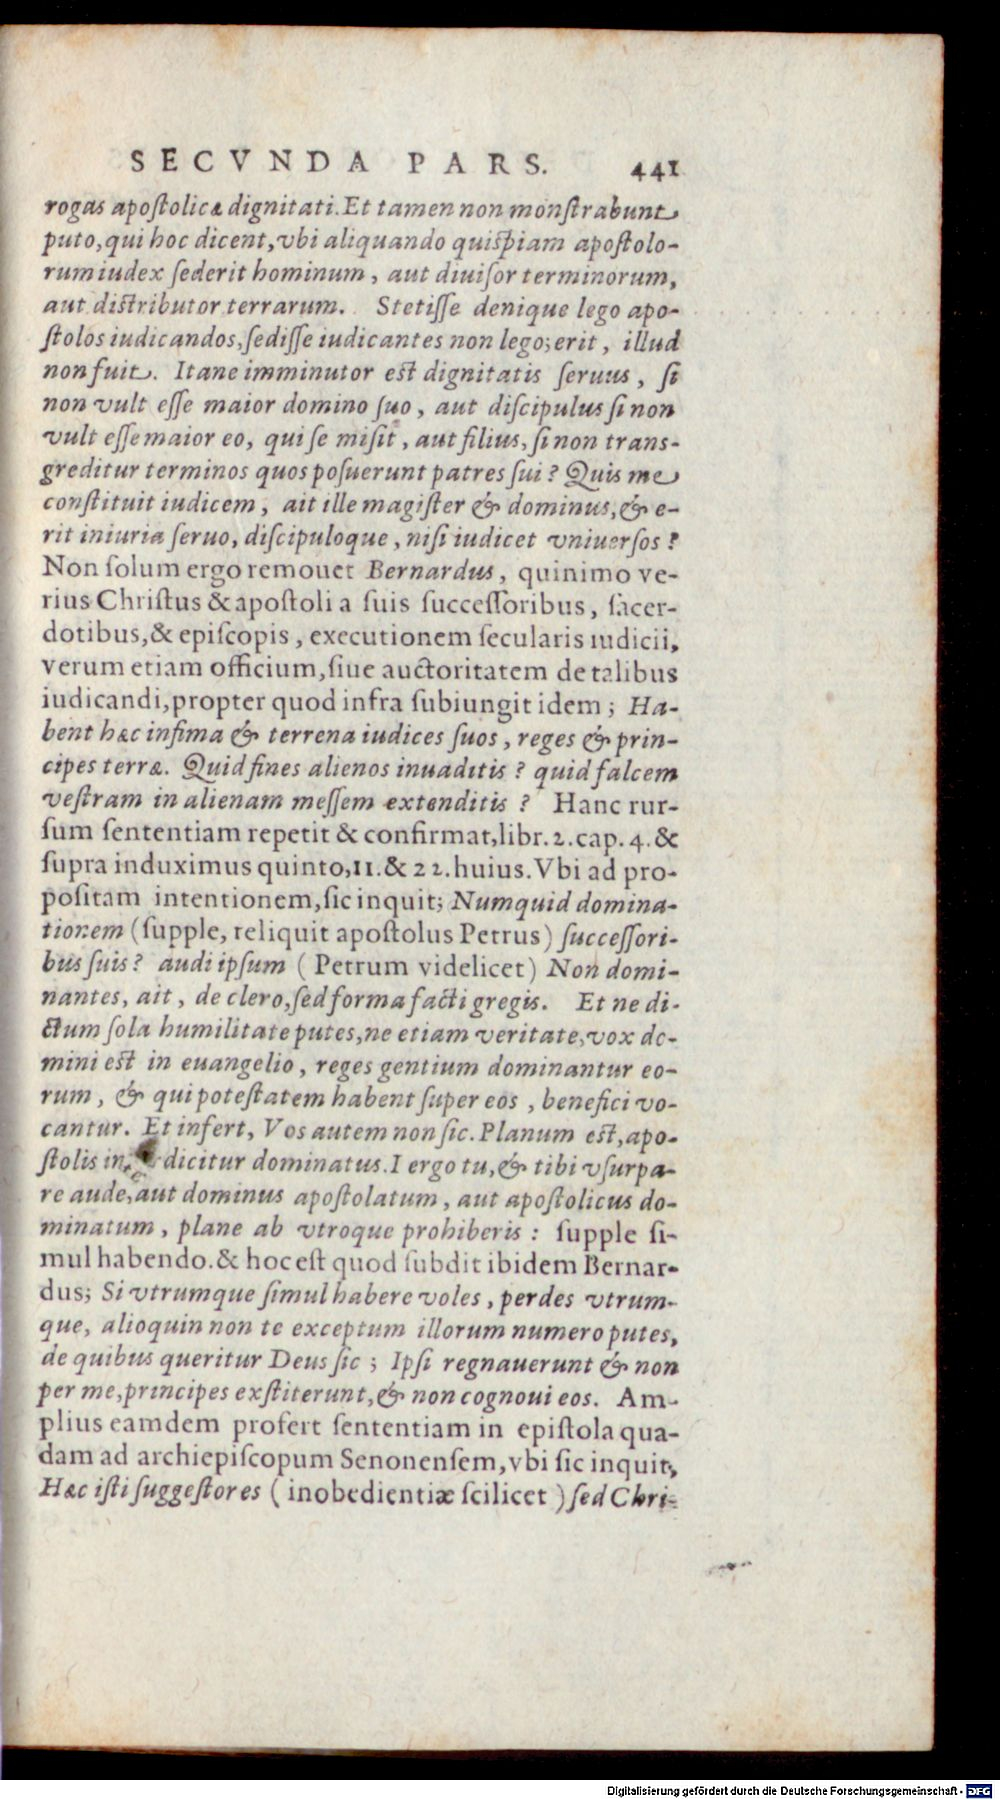 SECVNDA PARS. 441
rogas apoſtolicæ dignitati. Et tamen non monſtrabunt
puto, qui hoc dicent, vbi aliquando quiſpiam apoſtolo-
rum iudex ſederit hominum, aut diuiſor terminorum,
aut diſtributor terrarum. Stetiſſe denique lego apo-
ſtolos iudicandos, ſediſſe iudicantes non lego; erit, illud
non fuit. Itane imminutor eſt dignitatis ſeruus, ſi
non vult eſſe maior domino ſuo, aut diſcipulus ſi non
vult eſſe maior eo, qui ſe miſit, aut filius, ſi non trans-
greditur terminos quos poſuerunt patres ſui? Quis me
conſtituit iudicem, ait ille magiſter & dominus, & e-
rit iniuria ſeruo, diſcipuloque, niſi iudicet vniuerſos?
Non ſolum ergo remouet Bernardus, quinimo ve-
rius Chriſtus & apoſtoli a ſuis ſucceſſoribus, ſacer-
dotibus, & epiſcopis, executionem ſecularis iudicii,
verum etiam officium, ſiue auctoritatem de talibus
iudicandi, propter quod infra ſubiungit idem; Ha-
bent hæc infima & terrena iudices ſuos, reges & prin-
cipes terræ. Quid fines alienos inuaditis? quid falcem
veſtram in alienam meſſem extenditis? Hanc rur-
ſum ſententiam repetit & confirmat, libr. 2. cap. 4. &
ſupra induximus quinto, 11. & 22. huius. Vbi ad pro-
poſitam intentionem, ſic inquit; Numquid domina-
tionem (ſupple, reliquit apoſtolus Petrus) ſucceſſori-
bus ſuis? audi ipſum (Petrum videlicet) Non domi-
nantes, ait, de clero, ſed forma facti gregis. Et ne di-
ctum ſola humilitate putes, ne etiam veritate, vox do-
mini eſt in euangelio, reges gentium dominantur eo-
rum, & qui poteſtatem habent ſuper eos, benefici vo-
cantur. Et infert, Vos autem non ſic. Planum eſt, apo-
ſtolis in dicitur dominatus. I ergo tu, & tibi vſurpa-
re aude, aut dominus apoſtolatum, aut apoſtolicus do-
minatum, plane ab vtroque prohiberis: ſupple ſi-
mul habendo. & hoc eſt quod ſubdit ibidem Bernar-
dus; Si vtrumque ſimul habere voles, perdes vtrum-
que, alioquin non te exceptum illorum numero putes,
de quibus queritur Deus ſic; Ipſi regnauerunt & non
per me, principes exſtiterunt, & non cognoui eos. Am-
plius eamdem profert ſententiam in epiſtola qua-
dam ad archiepiſcopum Senonenſem, vbi ſic inquit,
Hæc iſti ſuggeſtores (inobedientiæ ſcilicet) ſed Chri-
Digitalisierung gefördert durch die Deutsche Forschungsgemeinschaft - DFG